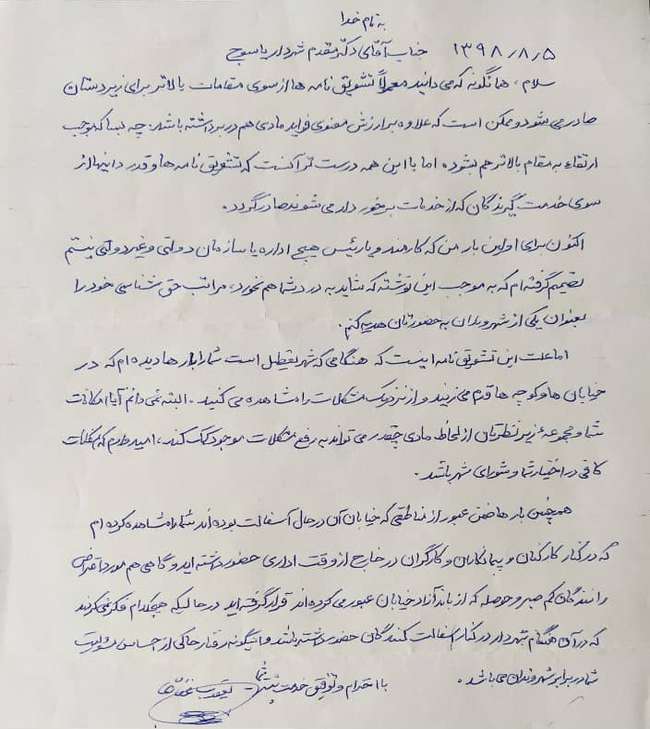 به نام خدا
جناب آقای دکتر مقدم شهردار یاسوج ۱۳۹۸/۸/۵
سلام، همانگونه که می دانید معمولاً تشویق نامه ها از سوی مقامات بالاتر برای زیردستان
صادر می شود و ممکن است که علاوه بر ارزش معنوی فواید مادی هم دربر داشته باشد. چه بسا که موجب
ارتقاء به مقام بالاتر هم بشود. اما با این همه درست تر آنست که تشویق نامه ها و قدردانیها از
سوی خدمت گیرندگان که از خدمات برخوردار می شوند صادر گردد.
اکنون برای اولین بار من که کارمند و یا رئیس هیچ اداره یا سازمان دولتی و غیر دولتی نیستم
تصمیم گرفته ام که به موجب این نوشته که شاید به درد شما هم نخورد، مراتب حق شناسی خود را
بعنوان یکی از شهروندان به حضورتان هدیه کنم.
اما علت این تشویق نامه اینست که هنگامی که شهر تعطیل است شما را بارها دیده ام که در
خیابان ها و کوچه ها قدم می زنید و از نزدیک مشکلات را مشاهده می کنید. البته نمی دانم آیا امکانات
شما و مجموعهٔ زیر نظرتان از لحاظ مادی چقدر می تواند به رفع مشکلات موجود کمک کند، امیدوارم که امکانات
کافی در اختیار شما و شورای شهر باشد.
همچنین بارها ضمن عبور از مناطقی که خیابان آن در حال آسفالت بوده اند شما را مشاهده کرده ام
که در کنار کارکنان و پیمانکاران و کارگران در خارج از وقت اداری حضور داشته اید و گاهی هم مورد اعتراض
رانندگان کم صبر و حوصله که از باند آزاد خیابان عبور می کرده اند قرار گرفته اید در حالیکه هیچکدام فکر نمی کردند
که در آن هنگام شهردار در کنار آسفالت کنندگان حضور داشته باشند و اینگونه رفتار حاکی از احساس مسئولیت
شما در برابر شهروندان می باشد.
با احترام و توفیق خدمت بیشتر شما یعقوب غفاری